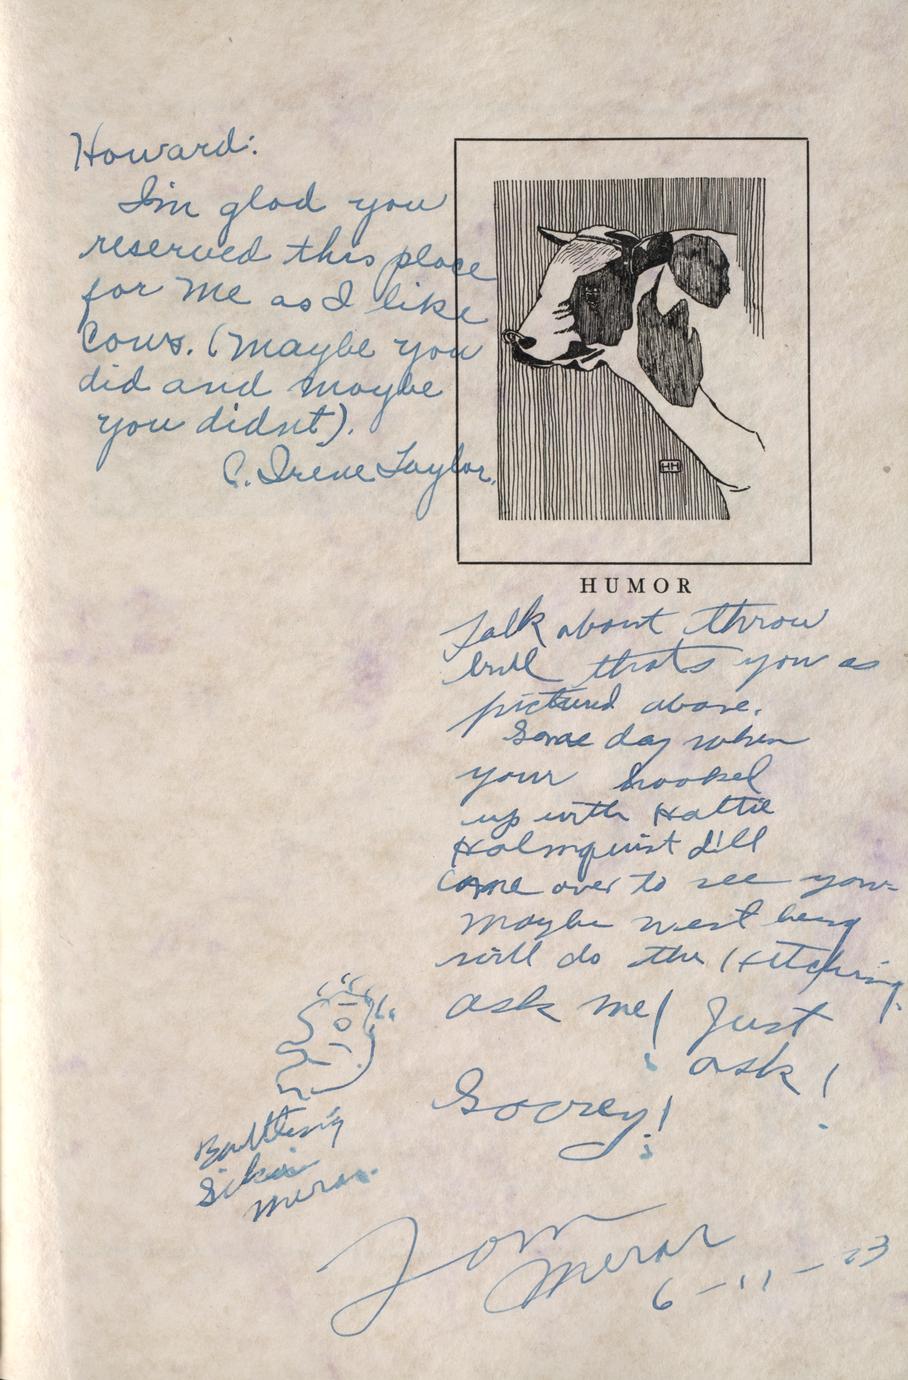 Howard:
I'm glad you
reserved this place
for me as I like
Cows. (Maybe you
did and maybe
you didnt).
C. Irene Taylor.
HH
HUMOR
Talk about throw
bull thats you as
pictured above.
Some day when
your hooked
up with Hattie
Holmquist I'll
come over to see you-
Maybe west
will do the
ask me! Just
ask!
Socrey!
Battling
Siki
Merar.
Tom
Merar
6-11-23